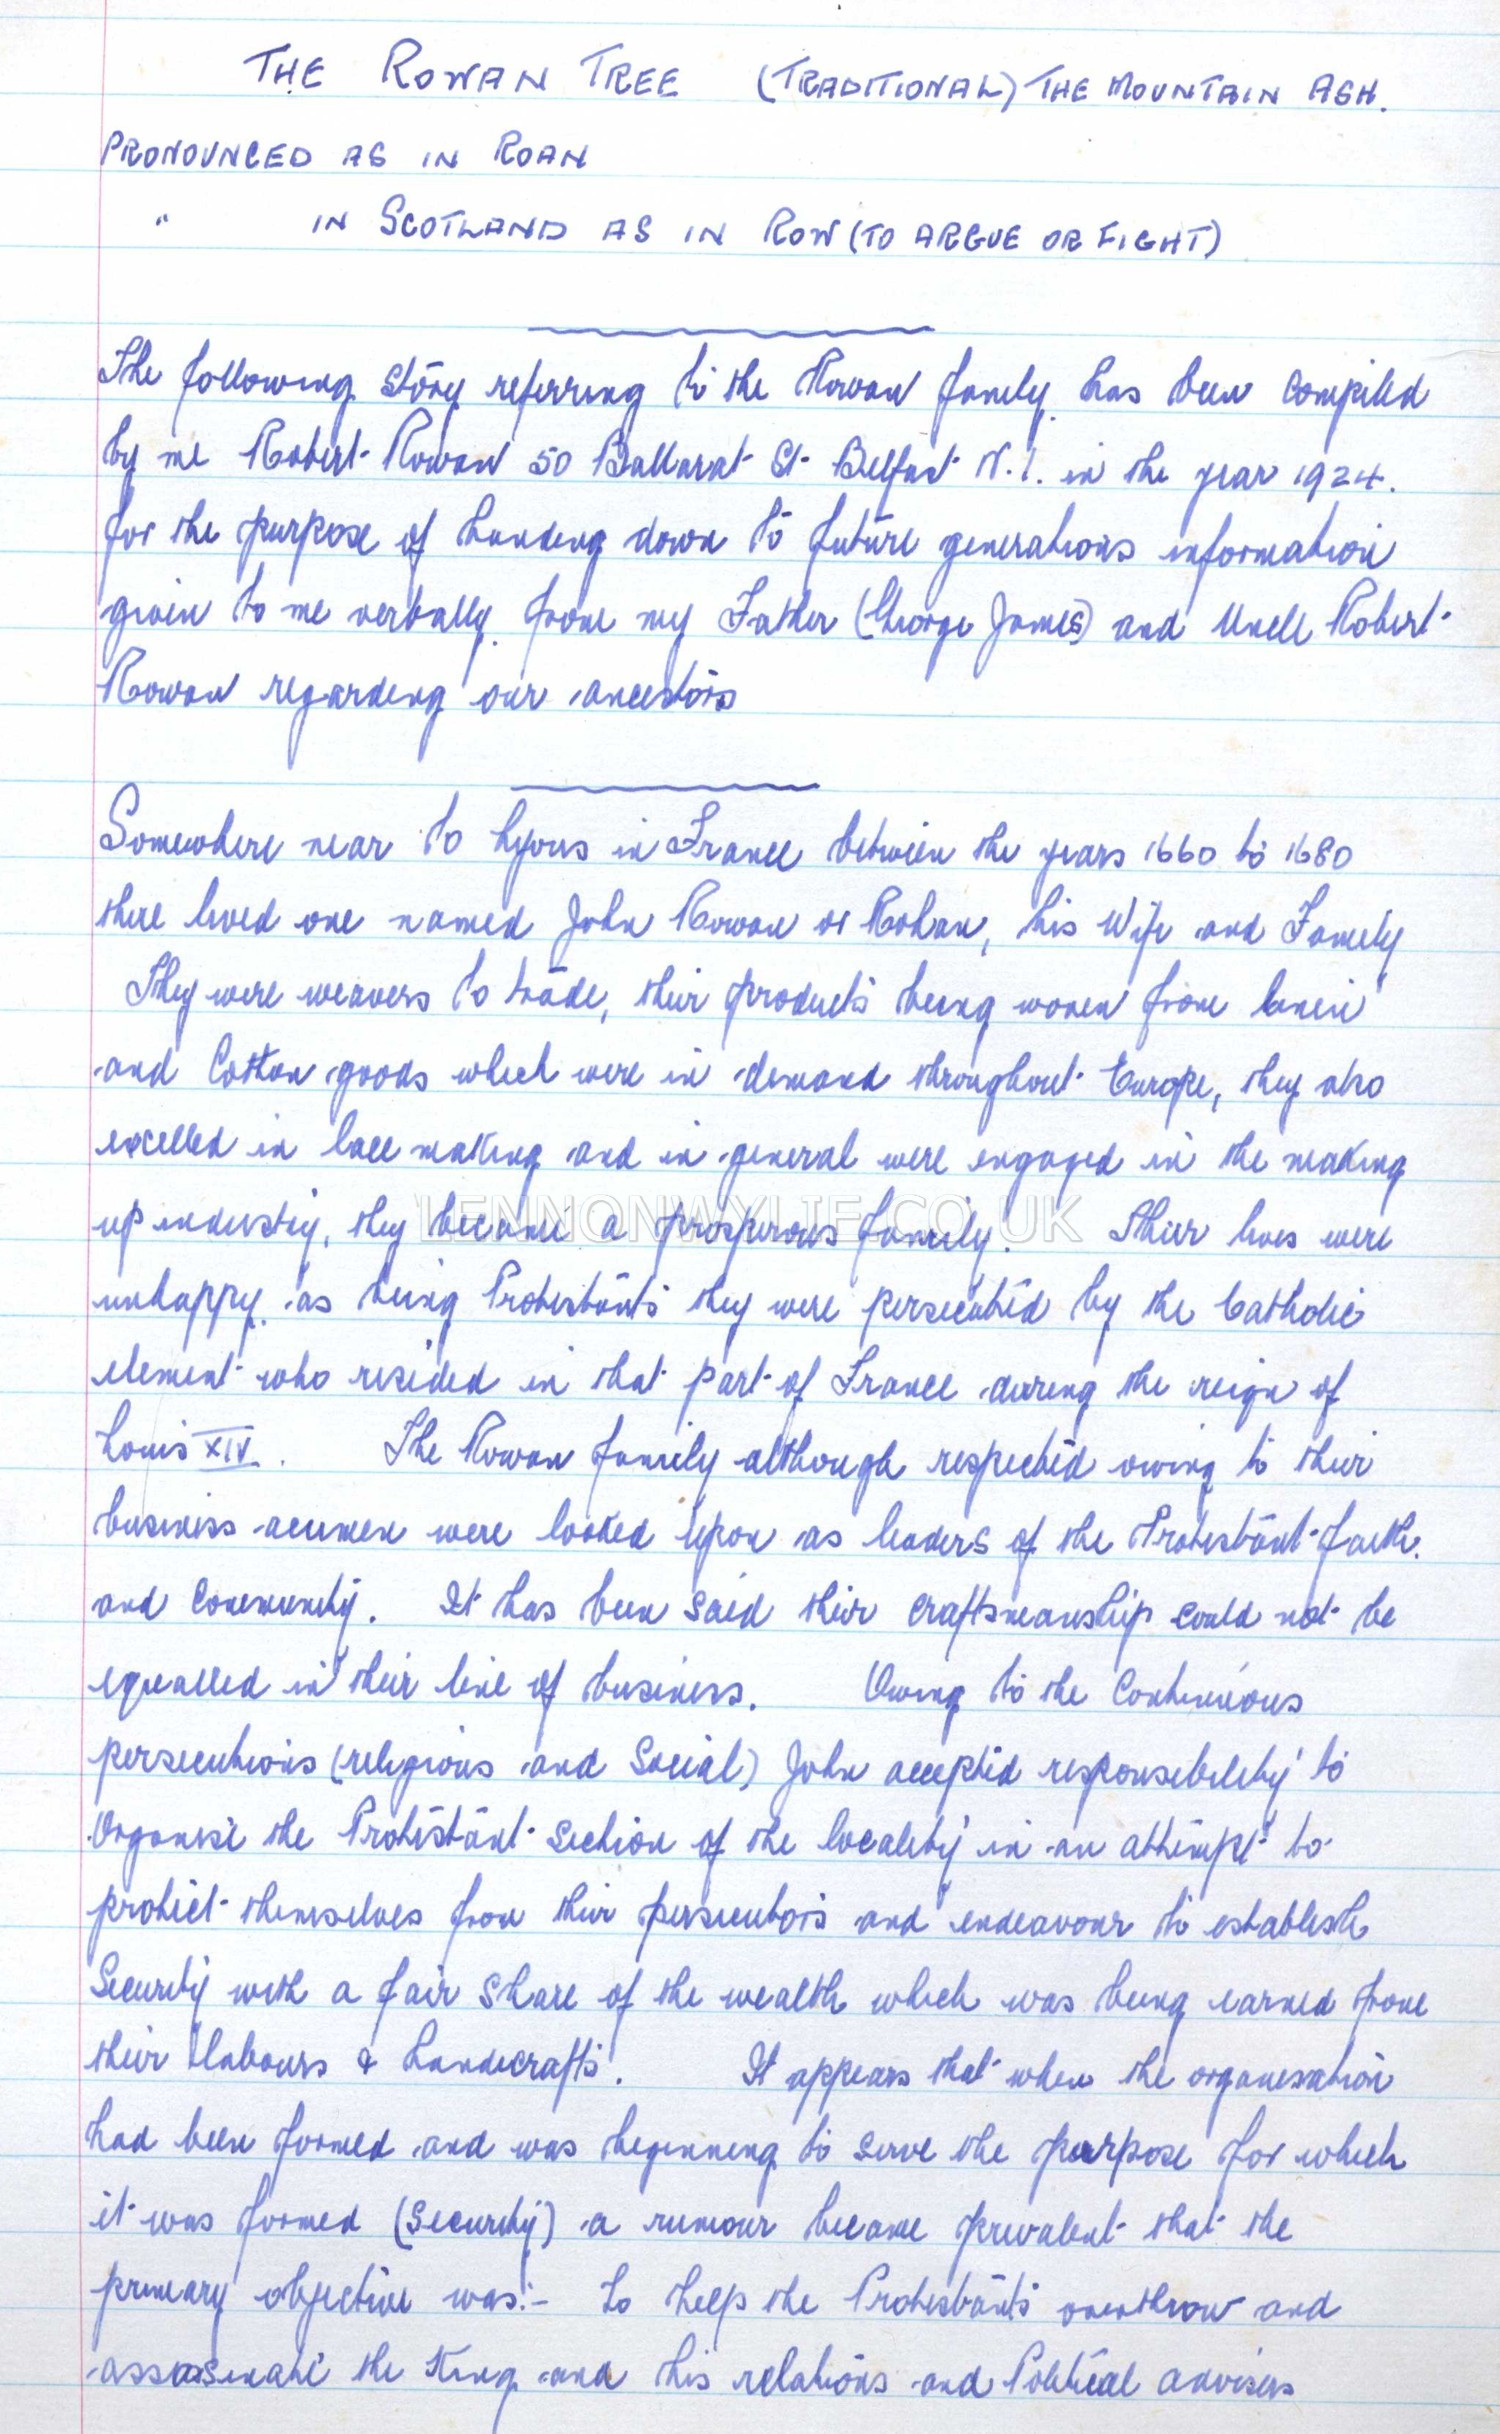 THE ROWAN TREE (TRADITIONAL) THE MOUNTAIN ASH.
PRONOUNCED AS IN ROAN
" IN SCOTLAND AS IN ROW (TO ARGUE OR FIGHT)
The following story referring to the Rowan family has been compiled
by me Robert Rowan 50 Ballarat St Belfast N.I. in the year 1924.
for the purpose of handing down to future generations information
given to me verbally from my Father (George James) and Uncle Robert
Rowan regarding our ancestors
Somewhere near to Lyons in France between the years 1660 to 1680
there lived one named John Rowan or Rohan, his Wife and Family
They were weavers to trade, their products being woven from linen
and Cotton goods which were in demand throughout Europe, they also
excelled in lace making and in general were engaged in the making
up industry, they became a prosperous family. Their lives were
LENNONWYLIE.CO.UK
unhappy as being Protestants they were persecuted by the Catholic
element who resided in that part of France during the reign of
Louis XIV. The Rowan family although respected owing to their
business acumen were looked upon as leaders of the Protestant faith.
and Community. It has been said their craftsmanship could not be
equalled in their line of business. Owing to the Continuous
persecutions (religious and Social) John accepted responsibility to
Organise the Protestant section of the locality in an attempt to
protect themselves from their persecutors and endeavour to establish
Security with a fair share of the wealth which was being earned from
their labours & handicrafts. It appears that when the organisation
had been formed and was beginning to serve the purpose for which
it was formed (Security) a rumour became prevalent that the
primary objective was:- to help the Protestants overthrow and
assassinate the King and his relations and Political advisers